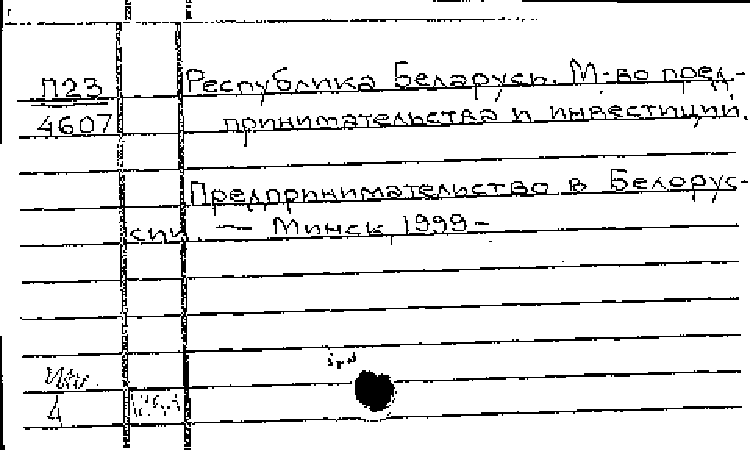 П23 Республика Беларусь. М-во пред-
4607 принимательства и инвестиций.
Предпринимательство в Белорус-
сии. — Минск 1999-
4